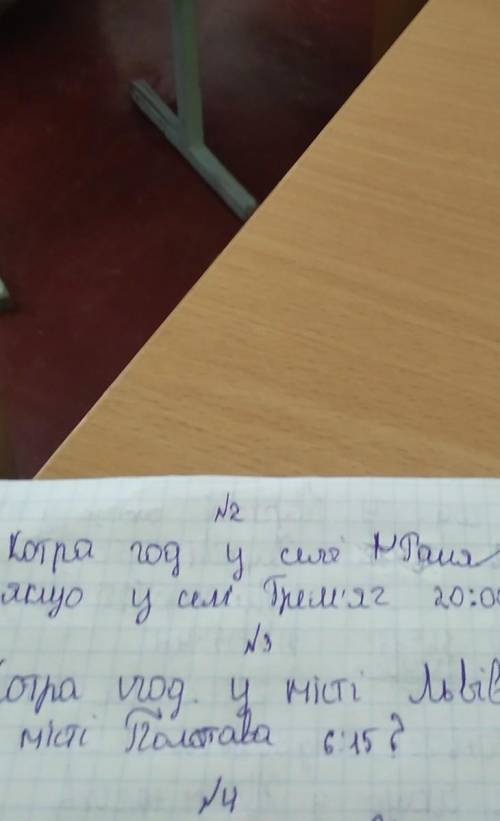 №2
Котра год у селі
якщо у селі Грем'яг 20:00
№3
Котра год. у місті Львів
місті Полтава 6:15?
№4